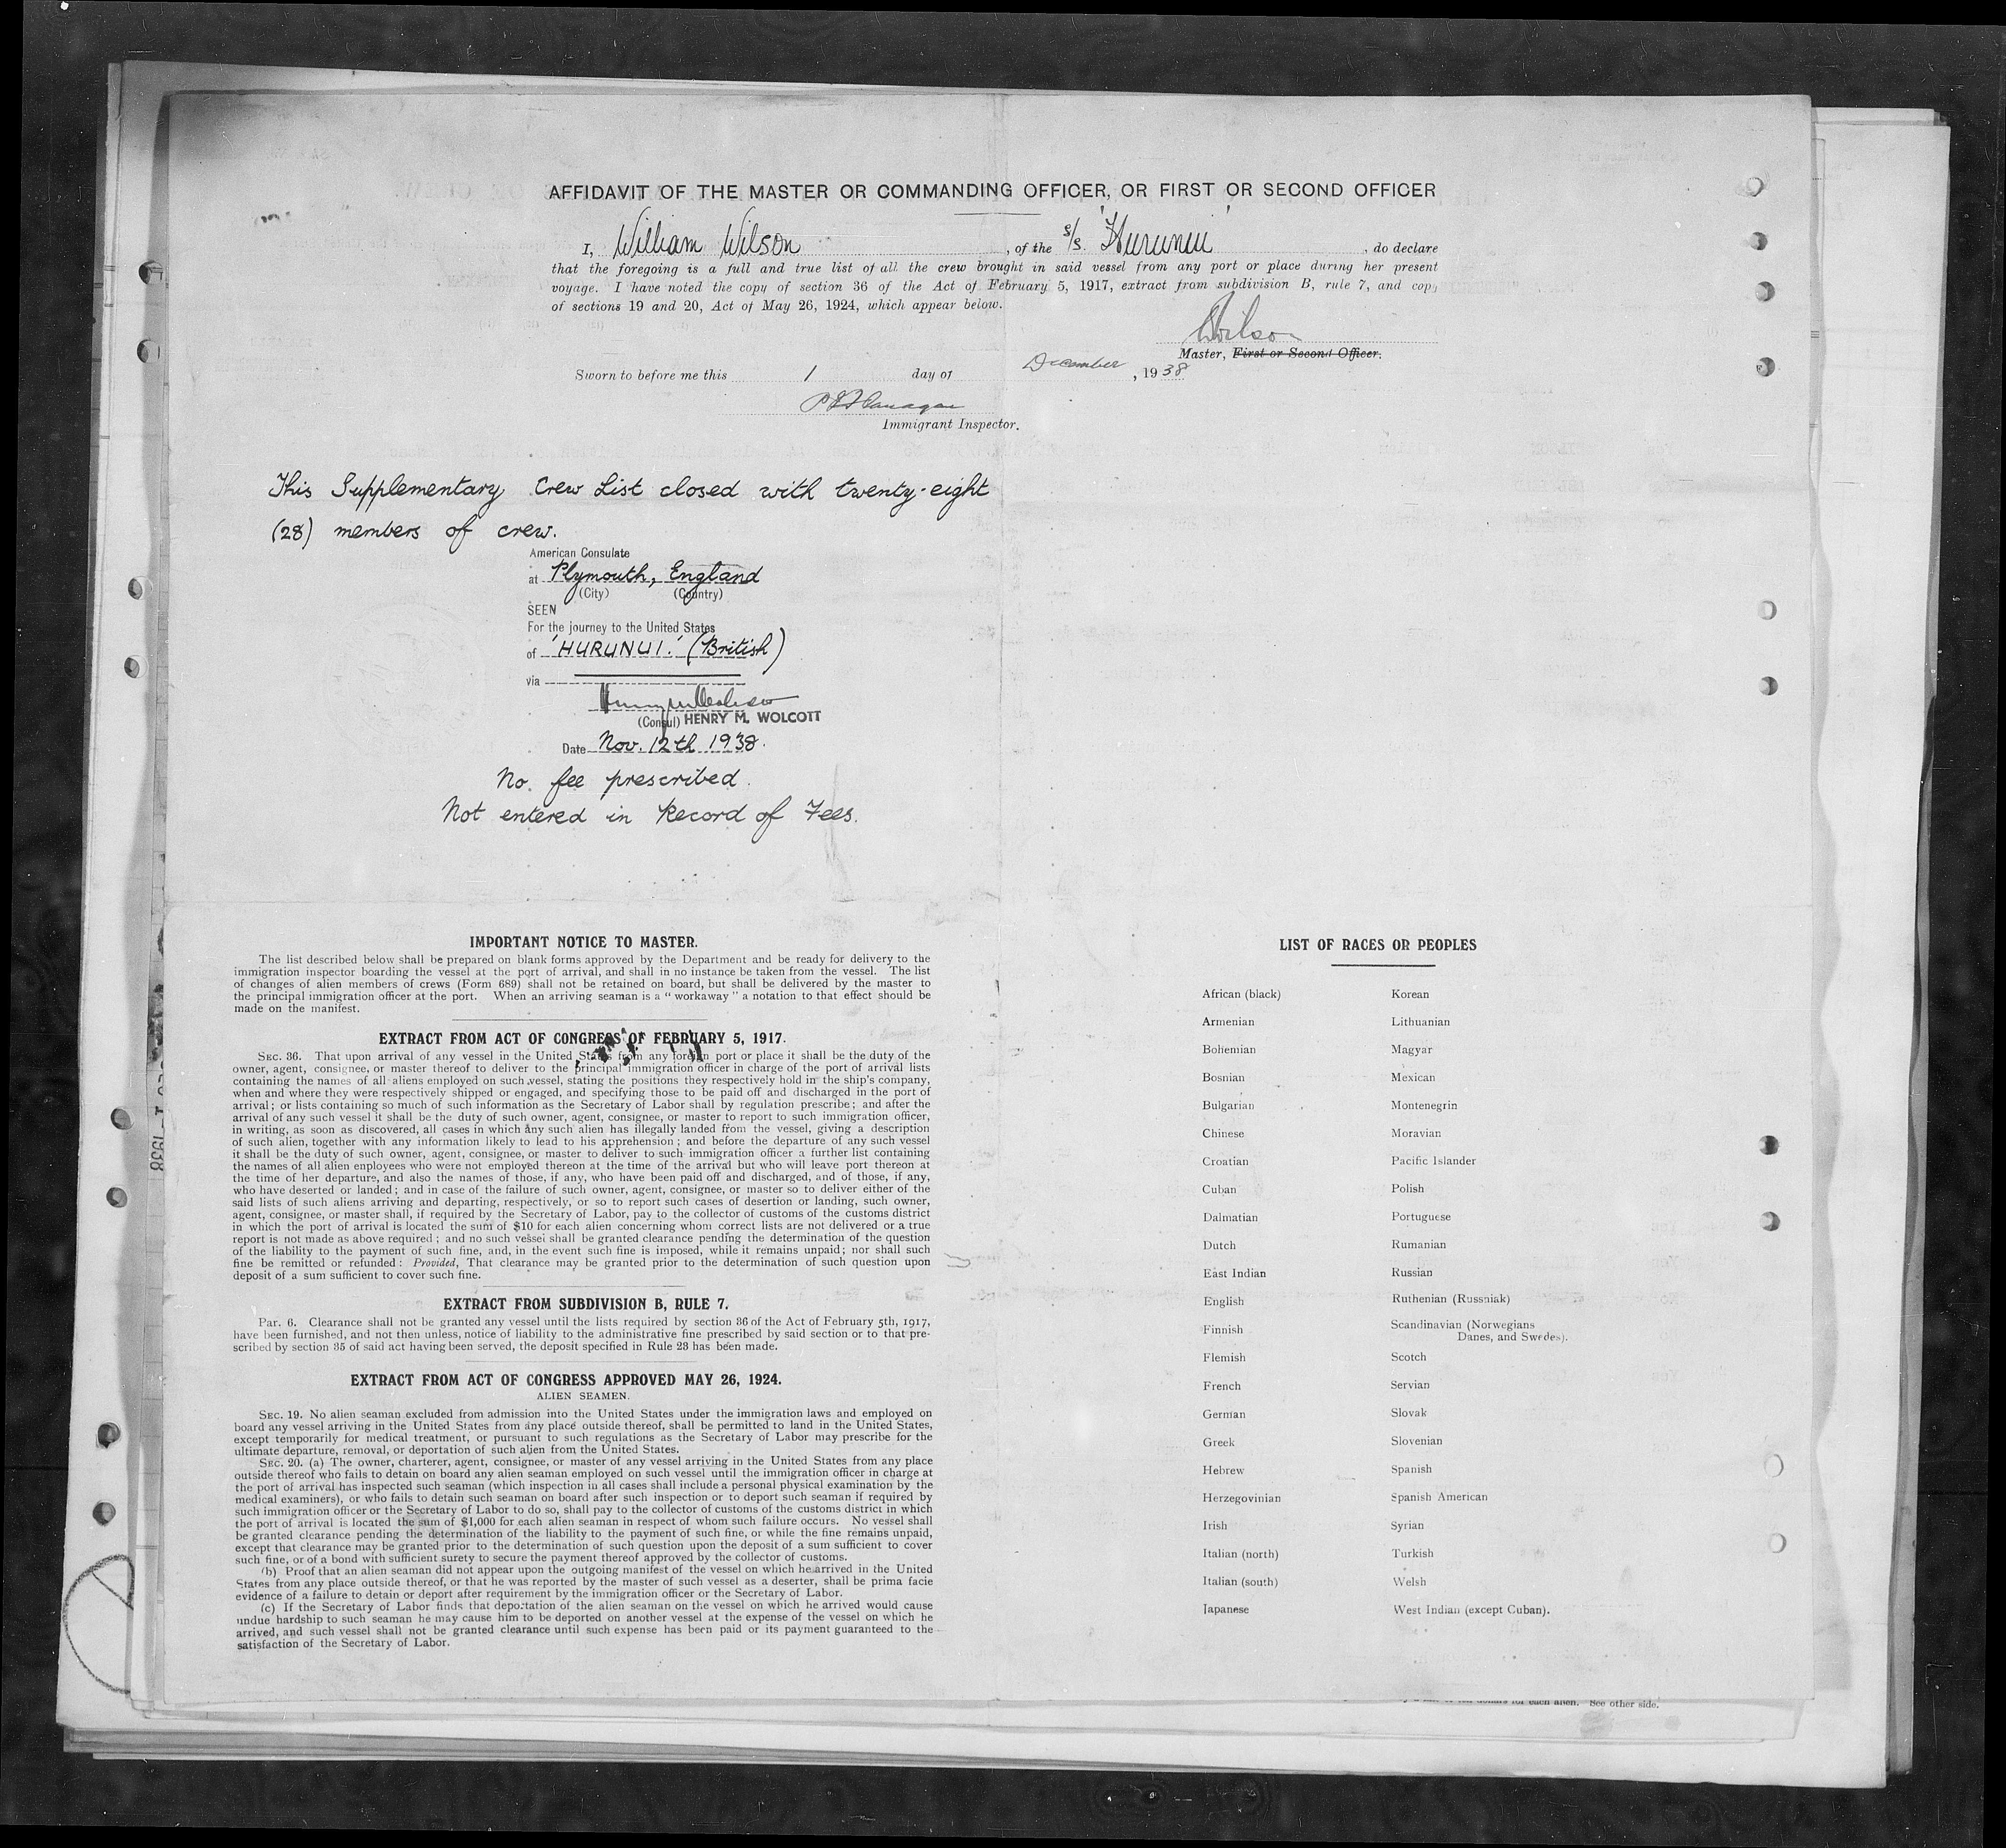 AFFIDAVIT OF THE MASTER OR COMMANDING OFFICER, OR FIRST OR SECOND OFFICER
I, William Wilson, of the s/s. 'Hurunui', do declare
that the foregoing is a full and true list of all the crew brought in said vessel from any port or place during her present
voyage. I have noted the copy of section 36 of the Act of February 5, 1917, extract from subdivision B, rule 7, and copy
of sections 19 and 20, Act of May 26, 1924, which appear below.
Wilson
Master, First or Second Officer.
Sworn to before me this 1 day of December, 1938
Immigrant Inspector.
This Supplementary Crew List closed with twenty-eight
(28) members of crew.
American Consulate
at Plymouth, England
(City) (Country)
SEEN
For the journey to the United States
of 'HURUNUI.' (British)
via
(Consul) HENRY M. WOLCOTT
Date Nov. 12th 1938.
No fee prescribed.
Not entered in Record of Fees.
IMPORTANT NOTICE TO MASTER.
The list described below shall be prepared on blank forms approved by the Department and be ready for delivery to the
immigration inspector boarding the vessel at the port of arrival, and shall in no instance be taken from the vessel. The list
of changes of alien members of crews (Form 689) shall not be retained on board, but shall be delivered by the master to
the principal immigration officer at the port. When an arriving seaman is a "workaway" a notation to that effect should be
made on the manifest.
EXTRACT FROM ACT OF CONGRESS OF FEBRUARY 5, 1917.
SEC. 36. That upon arrival of any vessel in the United States from any foreign port or place it shall be the duty of the
owner, agent, consignee, or master thereof to deliver to the principal immigration officer in charge of the port of arrival lists
containing the names of all aliens employed on such vessel, stating the positions they respectively hold in the ship's company,
when and where they were respectively shipped or engaged, and specifying those to be paid off and discharged in the port of
arrival; or lists containing so much of such information as the Secretary of Labor shall by regulation prescribe; and after the
arrival of any such vessel it shall be the duty of such owner, agent, consignee, or master to report to such immigration officer,
in writing, as soon as discovered, all cases in which any such alien has illegally landed from the vessel, giving a description
of such alien, together with any information likely to lead to his apprehension; and before the departure of any such vessel
it shall be the duty of such owner, agent, consignee, or master to deliver to such immigration officer a further list containing
the names of all alien enployees who were not employed thereon at the time of the arrival but who will leave port thereon at
the time of her departure, and also the names of those, if any, who have been paid off and discharged, and of those, if any,
who have deserted or landed; and in case of the failure of such owner, agent, consignee, or master so to deliver either of the
said lists of such aliens arriving and departing, respectively, or so to report such cases of desertion or landing, such owner,
agent, consignee, or master shall, if required by the Secretary of Labor, pay to the collector of customs of the customs district
in which the port of arrival is located the sum of $10 for each alien concerning whom correct lists are not delivered or a true
report is not made as above required; and no such vessel shall be granted clearance pending the determination of the question
of the liability to the payment of such fine, and, in the event such fine is imposed, while it remains unpaid; nor shall such
fine be remitted or refunded: Provided, That clearance may be granted prior to the determination of such question upon
deposit of a sum sufficient to cover such fine.
EXTRACT FROM SUBDIVISION B, RULE 7.
Par. 6. Clearance shall not be granted any vessel until the lists required by section 36 of the Act of February 5th, 1917,
have been furnished, and not then unless, notice of liability to the administrative fine prescribed by said section or to that pre-
scribed by section 35 of said act having been served, the deposit specified in Rule 28 has been made.
EXTRACT FROM ACT OF CONGRESS APPROVED MAY 26, 1924.
ALIEN SEAMEN.
SEC. 19. No alien seaman excluded from admission into the United States under the immigration laws and employed on
board any vessel arriving in the United States from any place outside thereof, shall be permitted to land in the United States,
except temporarily for medical treatment, or pursuant to such regulations as the Secretary of Labor may prescribe for the
ultimate departure, removal, or deportation of such alien from the United States.
SEC. 20. (a) The owner, charterer, agent, consignee, or master of any vessel arriving in the United States from any place
outside thereof who fails to detain on board any alien seaman employed on such vessel until the immigration officer in charge at
the port of arrival has inspected such seaman (which inspection in all cases shall include a personal physical examination by the
medical examiners), or who fails to detain such seaman on board after such inspection or to deport such seaman if required by
such immigration officer or the Secretary of Labor to do so, shall pay to the collector of customs of the customs district in which
the port of arrival is located the sum of $1,000 for each alien seaman in respect of whom such failure occurs. No vessel shall
be granted clearance pending the determination of the liability to the payment of such fine, or while the fine remains unpaid,
except that clearance may be granted prior to the determination of such question upon the deposit of a sum sufficient to cover
such fine, or of a bond with sufficient surety to secure the payment thereof approved by the collector of customs.
(b) Proof that an alien seaman did not appear upon the outgoing manifest of the vessel on which he arrived in the United
States from any place outside thereof, or that he was reported by the master of such vessel as a deserter, shall be prima facie
evidence of a failure to detain or deport after requirement by the immigration officer or the Secretary of Labor.
(c) If the Secretary of Labor finds that deportation of the alien seaman on the vessel on which he arrived would cause
undue hardship to such seaman he may cause him to be deported on another vessel at the expense of the vessel on which he
arrived, and such vessel shall not be granted clearance until such expense has been paid or its payment guaranteed to the
satisfaction of the Secretary of Labor.
LIST OF RACES OR PEOPLES
African (black) Korean
Armenian Lithuanian
Bohemian Magyar
Bosnian Mexican
Bulgarian Montenegrin
Chinese Moravian
Croatian Pacific Islander
Cuban Polish
Dalmatian Portuguese
Dutch Rumanian
East Indian Russian
English Ruthenian (Russniak)
Finnish Scandinavian (Norwegians
Danes, and Swedes).
Flemish Scotch
French Servian
German Slovak
Greek Slovenian
Hebrew Spanish
Herzegovinian Spanish American
Irish Syrian
Italian (north) Turkish
Italian (south) Welsh
Japanese West Indian (except Cuban).
for each alien. See other side.